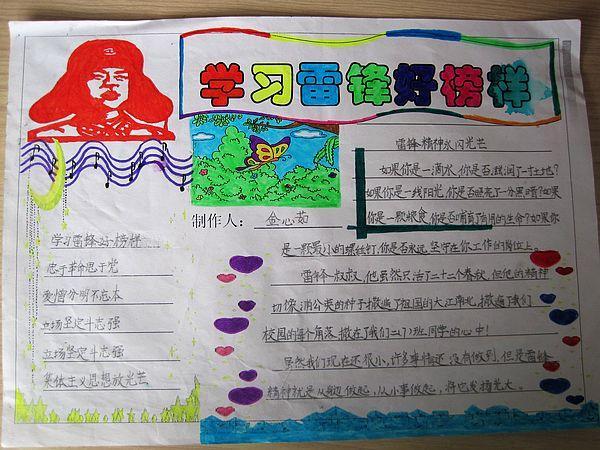 学习雷锋好榜样
雷锋精神永闪光芒
如果你是一滴水,你是否滋润了一寸土地?
如果你是一线阳光,你是否照亮了一分黑暗?如果
你是一颗粮食,你是否哺育了有用的生命?如果你
是一颗最小的螺丝钉,你是否永远坚守在你工作的岗位上。
雷锋叔叔,他虽然只活了二十二个春秋,但他的精神
切像洒公英的种子撒遍了祖国的大江南北,撒遍了我们
校园的每个角落,撒在了我们二(7)班同学的心中!
虽然我们现在还很小,许多事情还没有做到,但是雷锋
精神就是从身边做起,从小事做起,将它发扬光大。
制作人: 金心茹
学习雷锋好榜样
忠于革命忠于党
爱憎分明不忘本
立场坚定斗志强
立场坚定斗志强
集体主义思想放光芒